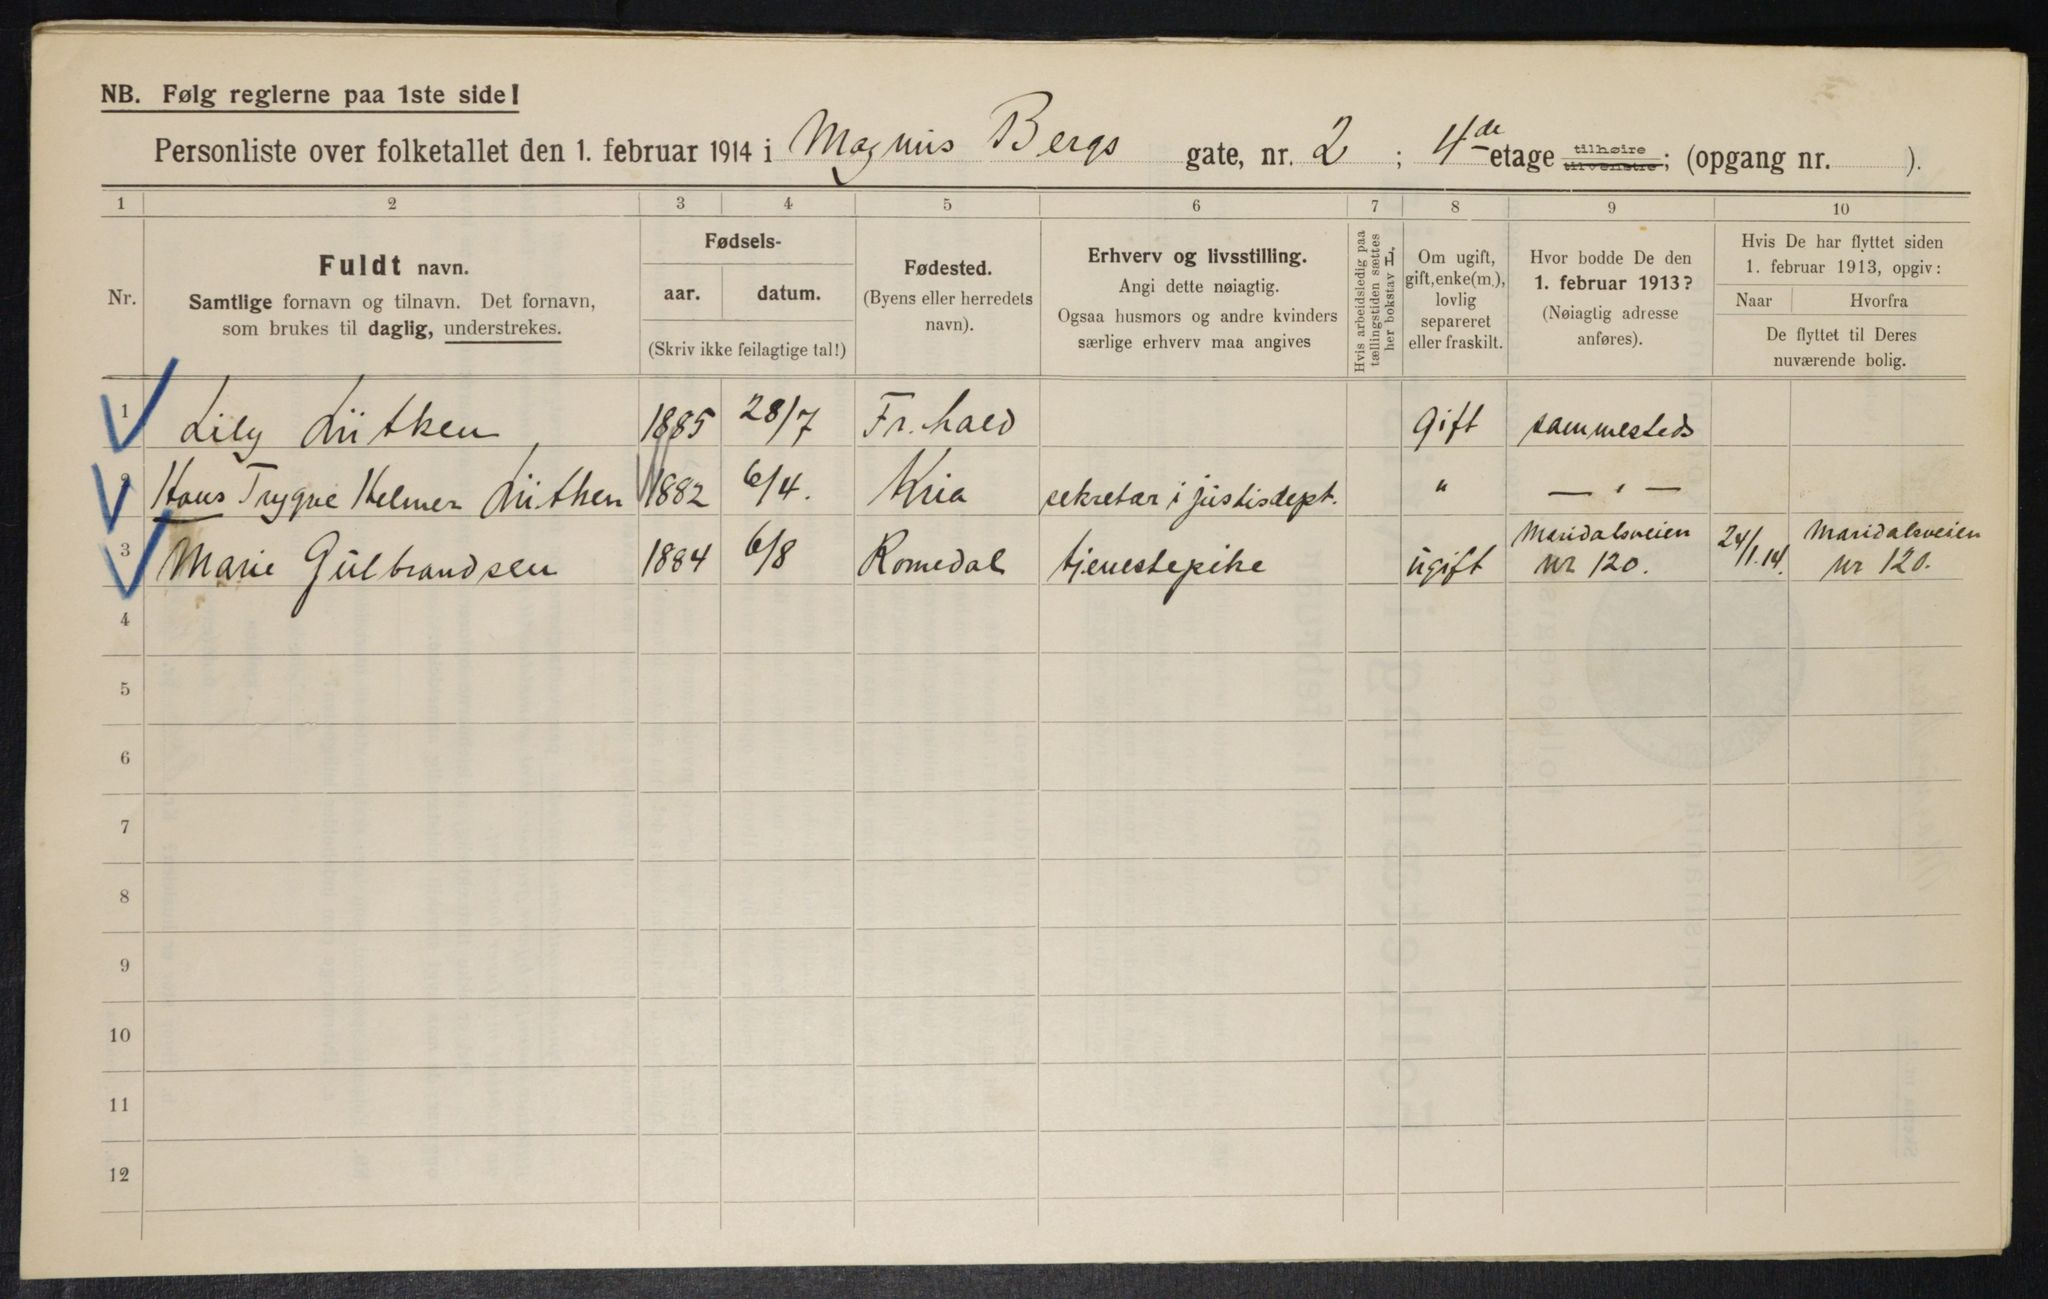 NB. Følg reglerne paa 1ste side!
Personliste over folketallet den 1. februar 1914 i Magnus Bergs gate, nr. 2 ; 4de etage tilhøire tilvenstre; (opgang nr. ).
1 2 3 4 5 6 7 8 9 10
Nr.
Fuldt navn.
Samtlige fornavn og tilnavn. Det fornavn,
som brukes til daglig, understrekes.
Fødsels-
aar. datum.
(Skriv ikke feilagtige tal!)
Fødested.
(Byens eller herredets
navn).
Erhverv og livsstilling.
Angi dette nøiagtig.
Ogsaa husmors og andre kvinders
særlige erhverv maa angives
Hvis arbeidsledig paa
tællingstiden sættes
her bokstav L.
Om ugift,
gift, enke(m.),
lovlig
separeret
eller fraskilt.
Hvor bodde De den
1. februar 1913?
(Nøiagtig adresse
anføres).
Hvis De har flyttet siden
1. februar 1913, opgiv:
Naar Hvorfra
De flyttet til Deres
nuværende bolig.
1 Lily Lütken 1885 28/7 Fr.hald Gift sammesteds
2 Hans Trygve Helmer Lütken 1882 6/4. Kria sekretær i justisdept. " — " —
3 Marie Gulbrandsen 1884 6/8 Romedal tjenestepike ugift Maridalsveien nr 120. 24/1.14. Maridalsveien nr 120.
4
5
6
7
8
9
10
11
12